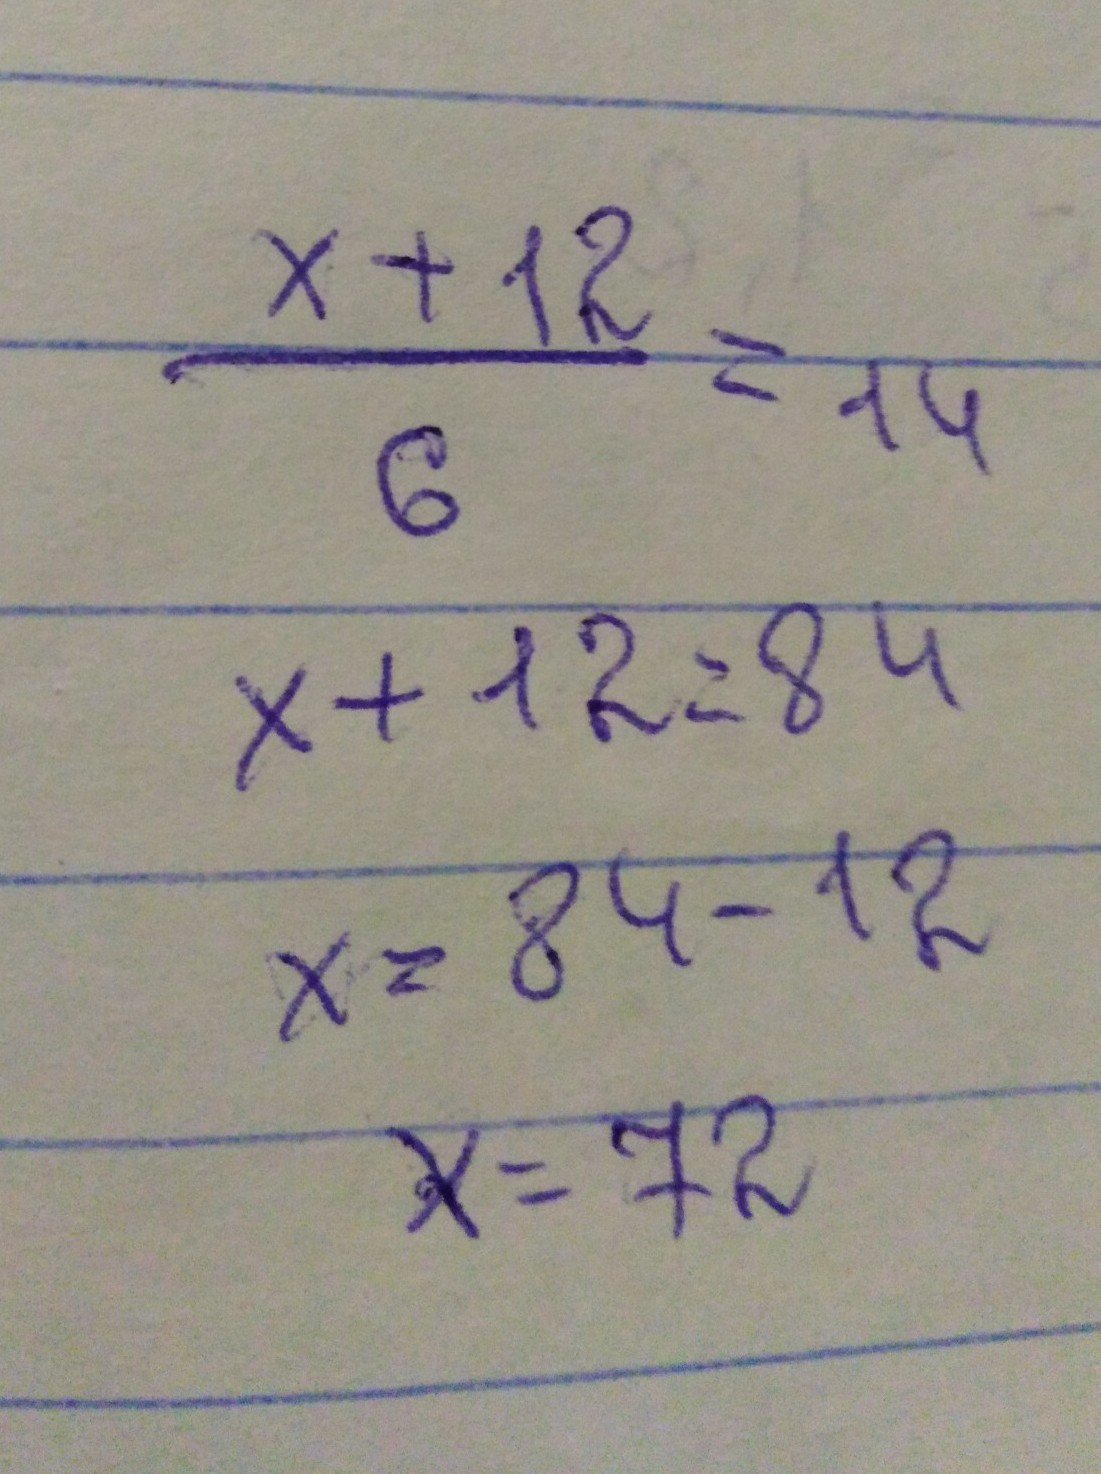 x + 12
─── = 14
6
x + 12 = 84
x = 84 - 12
x = 72